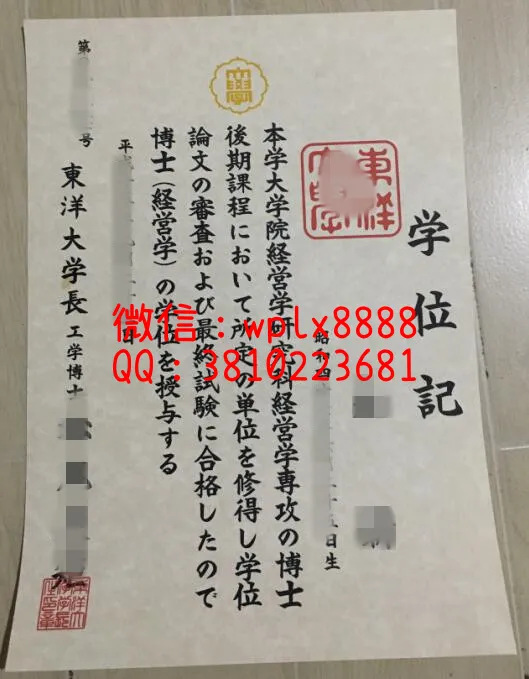 学位記
昭和四
日生
本学大学院経営学研究科経営学専攻の博士
後期課程において所定の単位を修得し学位
論文の審査および最終試験に合格したので
博士(経営学)の学位を授与する
平成
日
東洋大学長 工学博士
第
号
微信：wplx8888
QQ：3810223681